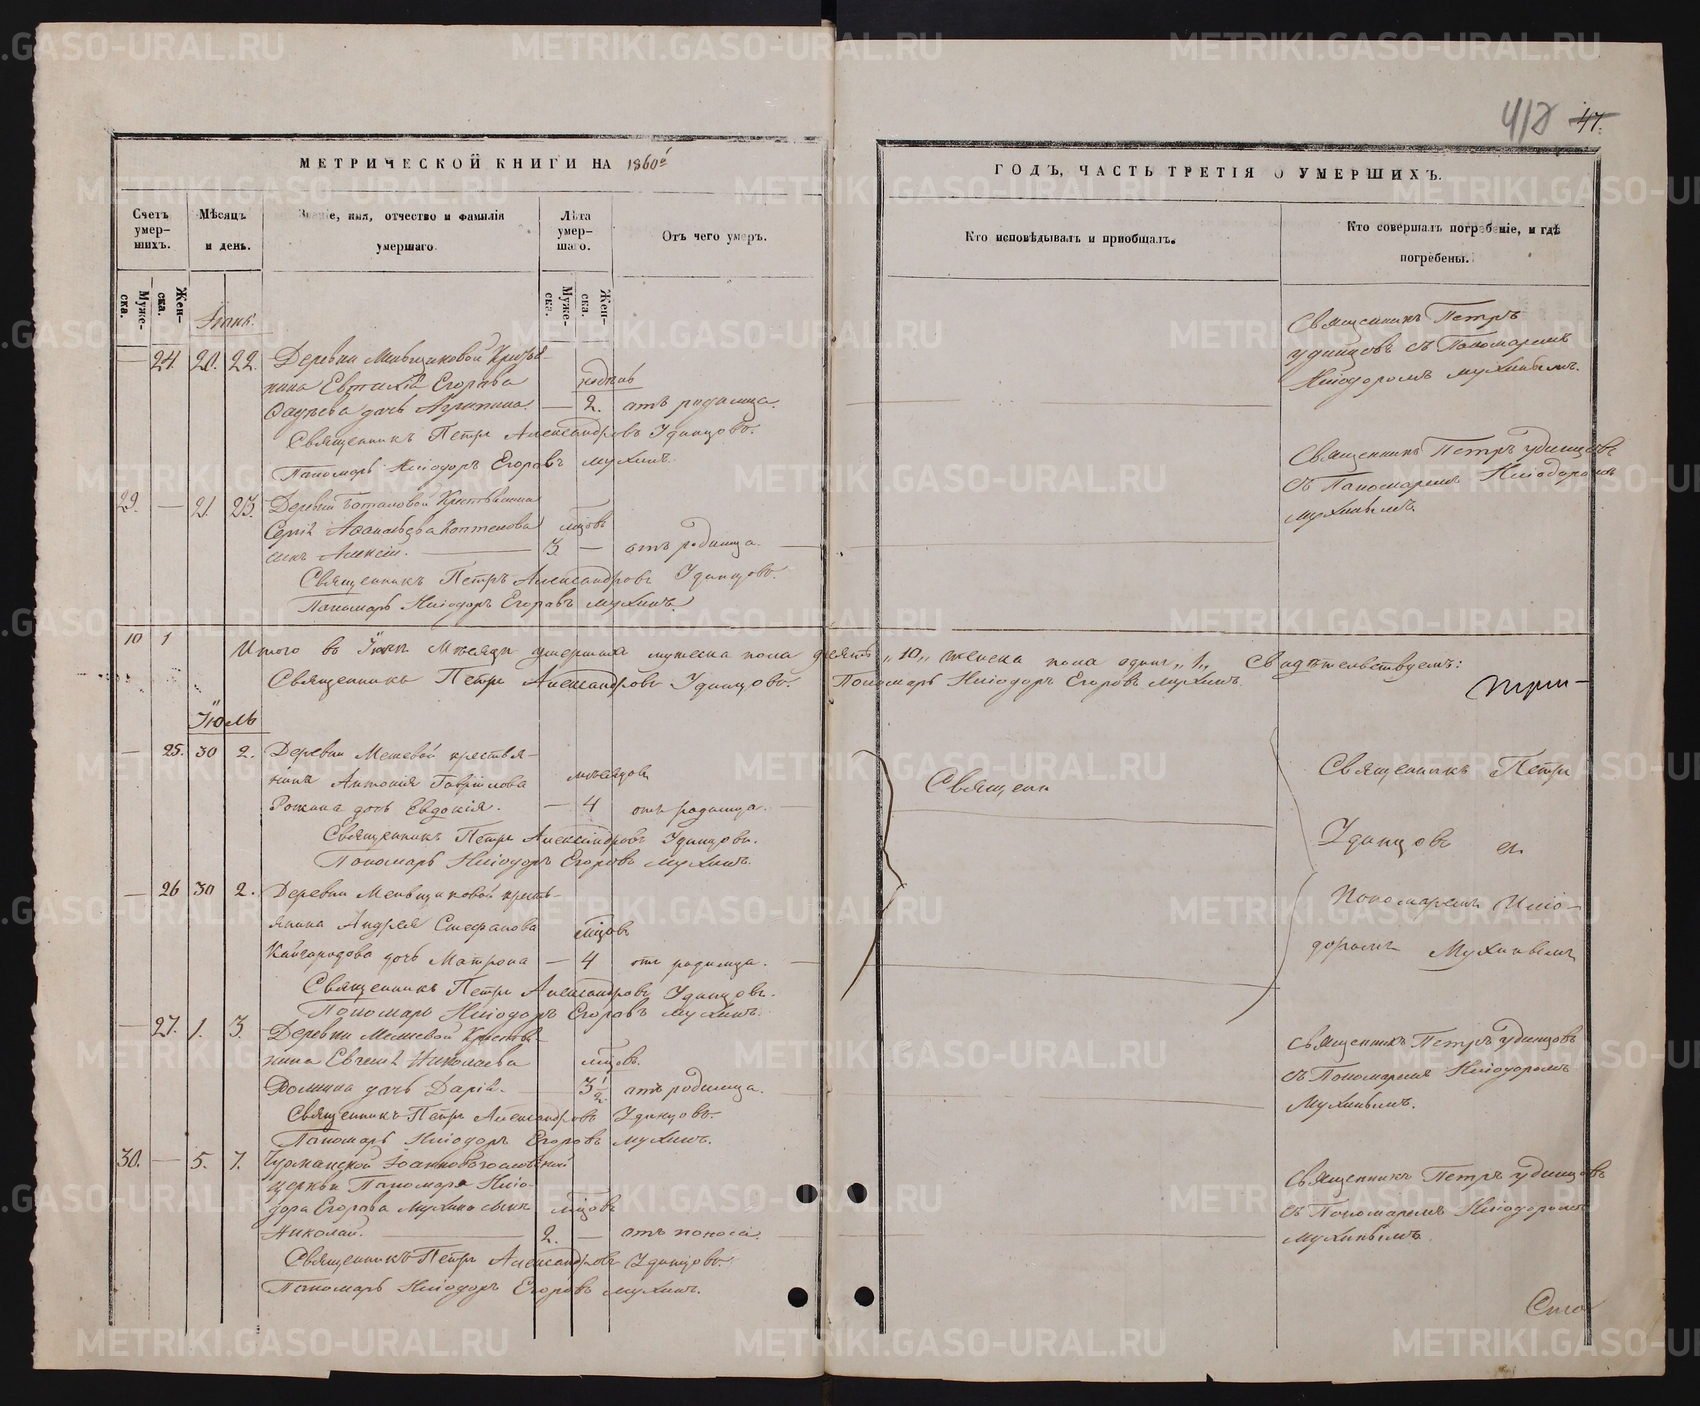 МЕТРИЧЕСКОЙ КНИГИ НА 1860й
Счетъ умер-шихъ.
Мѣсяцъ и день.
Званіе, имя, отчество и фамилія умершаго.
Лѣта умер-шаго.
Отъ чего умеръ.
Муже-ска.
Жен-ска.
Муже-ска.
Жен-ска.
Іюнь.
— 24. 20. 22. Деревни Меньщиковой Крестья-
нина Егорова недѣль
дочь Агрипина. — 2. отъ родимца.
Священникъ Петръ Александровъ Удинцовъ.
Пономарь Иліодоръ Егоровъ Мухинъ.
29. — 21. 23. Деревни Боталовой Крестьянина
Сергія Аѳанасьева Коптелова мцовъ
сынъ Алексій. 3 — отъ родимца.
Священникъ Петръ Александровъ Удинцовъ.
Пономарь Иліодоръ Егоровъ Мухинъ.
10 1
Итого въ Іюнѣ Мѣсяцѣ умершихъ мужеска пола десять „10„ женска пола одинъ „1„ Свидѣтельствуемъ:
Священникъ Петръ Александровъ Удинцовъ. Пономарь Иліодоръ Егоровъ Мухинъ.
Іюль
— 25. 30 2. Деревни Межевой крестья-
нина Антонія Гаврилова мѣсяцовъ
дочь Евдокія. — 4 отъ родимца.
Священникъ Петръ Александровъ Удинцовъ.
Пономарь Иліодоръ Егоровъ Мухинъ.
— 26 30 2. Деревни Меньщиковой кресть-
янина Андрея Стефанова мцовъ
Кайгородова дочь Матрона — 4 отъ родимца.
Священникъ Петръ Александровъ Удинцовъ.
Пономарь Иліодоръ Егоровъ Мухинъ.
— 27. 1. 3. Деревни Межевой Крестья-
нина Евгенія Николаева мцовъ.
Фомина дочь Дарія. 3 1/2 отъ родимца.
Священникъ Петръ Александровъ Удинцовъ.
Пономарь Иліодоръ Егоровъ Мухинъ.
30. — 5. 7. Іоанновъ
церкви Пономаря Иліо-
дора Егорова Мухина сынъ мцовъ
Николай. 2. — отъ поноса.
Священникъ Петръ Александровъ Удинцовъ.
Пономарь Иліодоръ Егоровъ Мухинъ.
418 47.
ГОДЪ, ЧАСТЬ ТРЕТІЯ О УМЕРШИХЪ.
Кто исповѣдывалъ и пріобщалъ.
Кто совершалъ погребеніе, и гдѣ погребены.
Священникъ Петръ
Удинцовъ съ Пономаремъ
Иліодоромъ Мухинымъ.
Священникъ Петръ Удинцовъ
съ Пономаремъ Иліодоромъ
Мухинымъ.
Священн
Священникъ Петръ
Удинцовъ съ
Пономаремъ Иліо-
доромъ Мухинымъ
Священникъ Петръ Удинцовъ
съ Пономаремъ Иліодоромъ
Мухинымъ.
Священникъ Петръ Удинцовъ
съ Пономаремъ Иліодоромъ
Мухинымъ.
METRIKI.GASO-URAL.RU